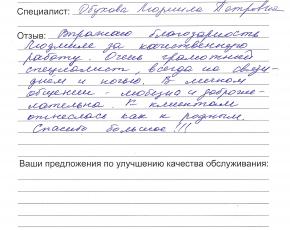 Специалист: Обухова Людмила Петровна
Отзыв: Выражаю благодарность
Людмиле за качественную
работу. Очень грамотный
специалист, всегда на связи
днем и ночью. В личном
общении - любезна и доброже-
лательна. К клиентам
отнеслась как к родным.
Спасибо большое!!!
Ваши предложения по улучшению качества обслуживания: